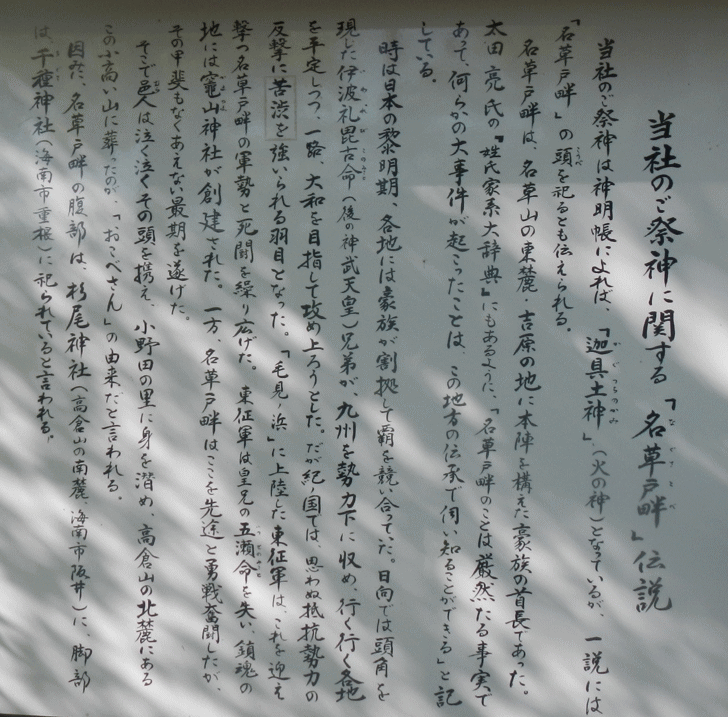 当社のご祭神に関する「名草戸畔」伝説
当社のご祭神は神明帳によれば、「迦具土神」（火の神）となっているが、一説には
「名草戸畔」の頭を祀るとも伝えられる。
名草戸畔は、名草山の東麓・吉原の地に本陣を構えた豪族の首長であった。
太田亮氏の『姓氏家系大辞典』にもあるように、「名草戸畔のことは厳然たる事実で
あって、何らかの大事件が起こったことは、この地方の伝承で伺い知ることができる」と記
している。
時は日本の黎明期、各地には豪族が割拠して覇を競い合っていた。日向では頭角を
現した伊波礼毘古命（後の神武天皇）兄弟が、九州を勢力下に収め、行く行く各地
を平定しつつ、一路、大和を目指して攻め上ろうとした。だが紀ノ国では、思わぬ抵抗勢力の
反撃に苦渋を強いられる羽目となった。「毛見ノ浜」に上陸した東征軍は、これを迎え
撃つ名草戸畔の軍勢と死闘を繰り広げた。東征軍は皇兄の五瀬命を失い、鎮魂の
地には竈山神社が創建された。一方、名草戸畔はここを先途と勇戦奮闘したが、
その甲斐もなくあえない最期を遂げた。
そこで邑人は泣く泣くその頭を携え、小野田の里に身を潜め、高倉山の北麓にある
この小高い山に葬ったのが、「おこべさん」の由来だと言われる。
因みに、名草戸畔の腹部は、杉尾神社（高倉山の南麓、海南市阪井）に、脚部
は、千種神社（海南市重根）に祀られていると言われる。